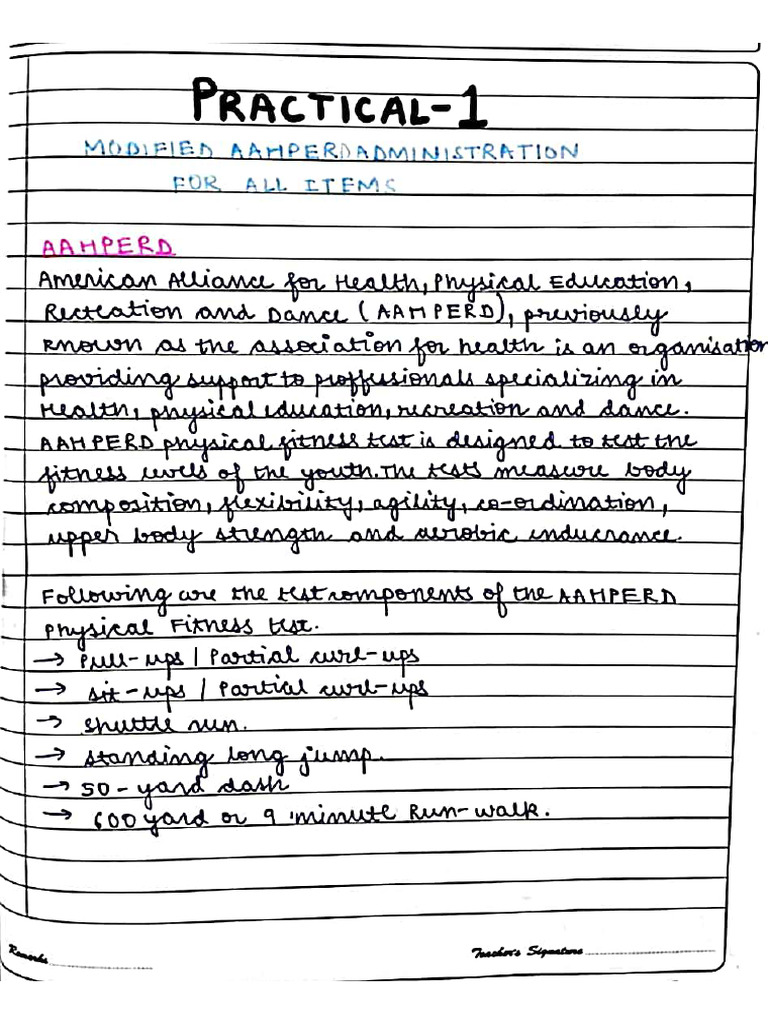 PRACTICAL-1
MODIFIED AAHPERD ADMINISTRATION
FOR ALL ITEMS
AAHPERD
American Alliance for Health, Physical Education,
Recreation and Dance (AAHPERD), previously
known as the association for health is an organisation
providing support to proffusionals specializing in
Health, physical education, recreation and dance.
AAHPERD physical fitness test is designed to test the
fitness levels of the youth. The tests measure body
composition, flexibility, agility, co-ordination,
upper body strength and aerobic endurance.
Following are the test components of the AAHPERD
Physical Fitness test.
→ Pull-ups / Partial curl-ups
→ sit-ups / Partial curl-ups
→ shuttle run.
→ standing long jump.
→ 50-yard dash
→ 600 yard or 9 minute Run-walk.
Remarks
Teacher's Signature